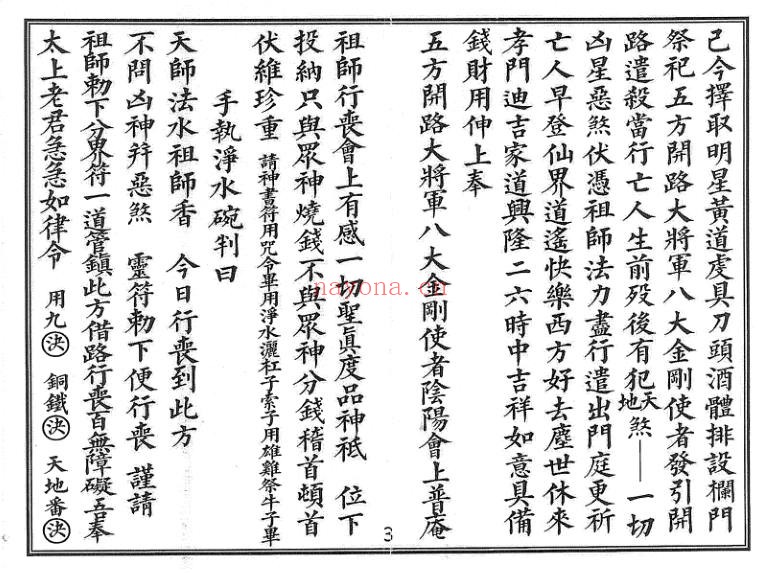 己今擇取明星黃道虔具刀頭酒體排設欄門
祭祀五方開路大將軍八大金剛使者發引開
路遣殺當行亡人生前歿後有犯天地煞——一切
凶星惡煞伏憑祖師法力盡行遣出門庭更祈
亡人早登仙界逍遙快樂西方好去塵世休來
孝門迪吉家道興隆二六時中吉祥如意具備
錢財用伸上奉
五方開路大將軍八大金剛使者陰陽會上普庵
祖師行喪會上有感一切聖眞度品神祇 位下
投納只與眾神燒錢不與眾神分錢稽首頓首
伏維珍重 請神書符用咒令畢用淨水灑杠子索子用雄雞祭牛子畢
手執淨水碗判曰
天師法水祖師香 今日行喪到此方
不問凶神并惡煞 靈符勅下便行喪 謹請
祖師勅下分界符一道管鎮此方借路行喪百無障礙吾奉
太上老君急急如律令 用九決 銅鐵決 天地番決
3
nayona.cn